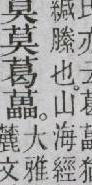 氏亦云葛藟猶
緘縢也。山海經
莫莫葛藟。大雅
麓文